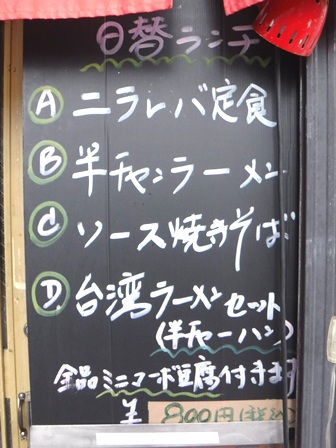 日替ランチ
A ニラレバ定食
B 半チャンラーメン
C ソース焼きそば
D 台湾ラーメンセット
(半チャーハン)
全品ミニマーボ豆腐付きます
¥ 800円(税込)